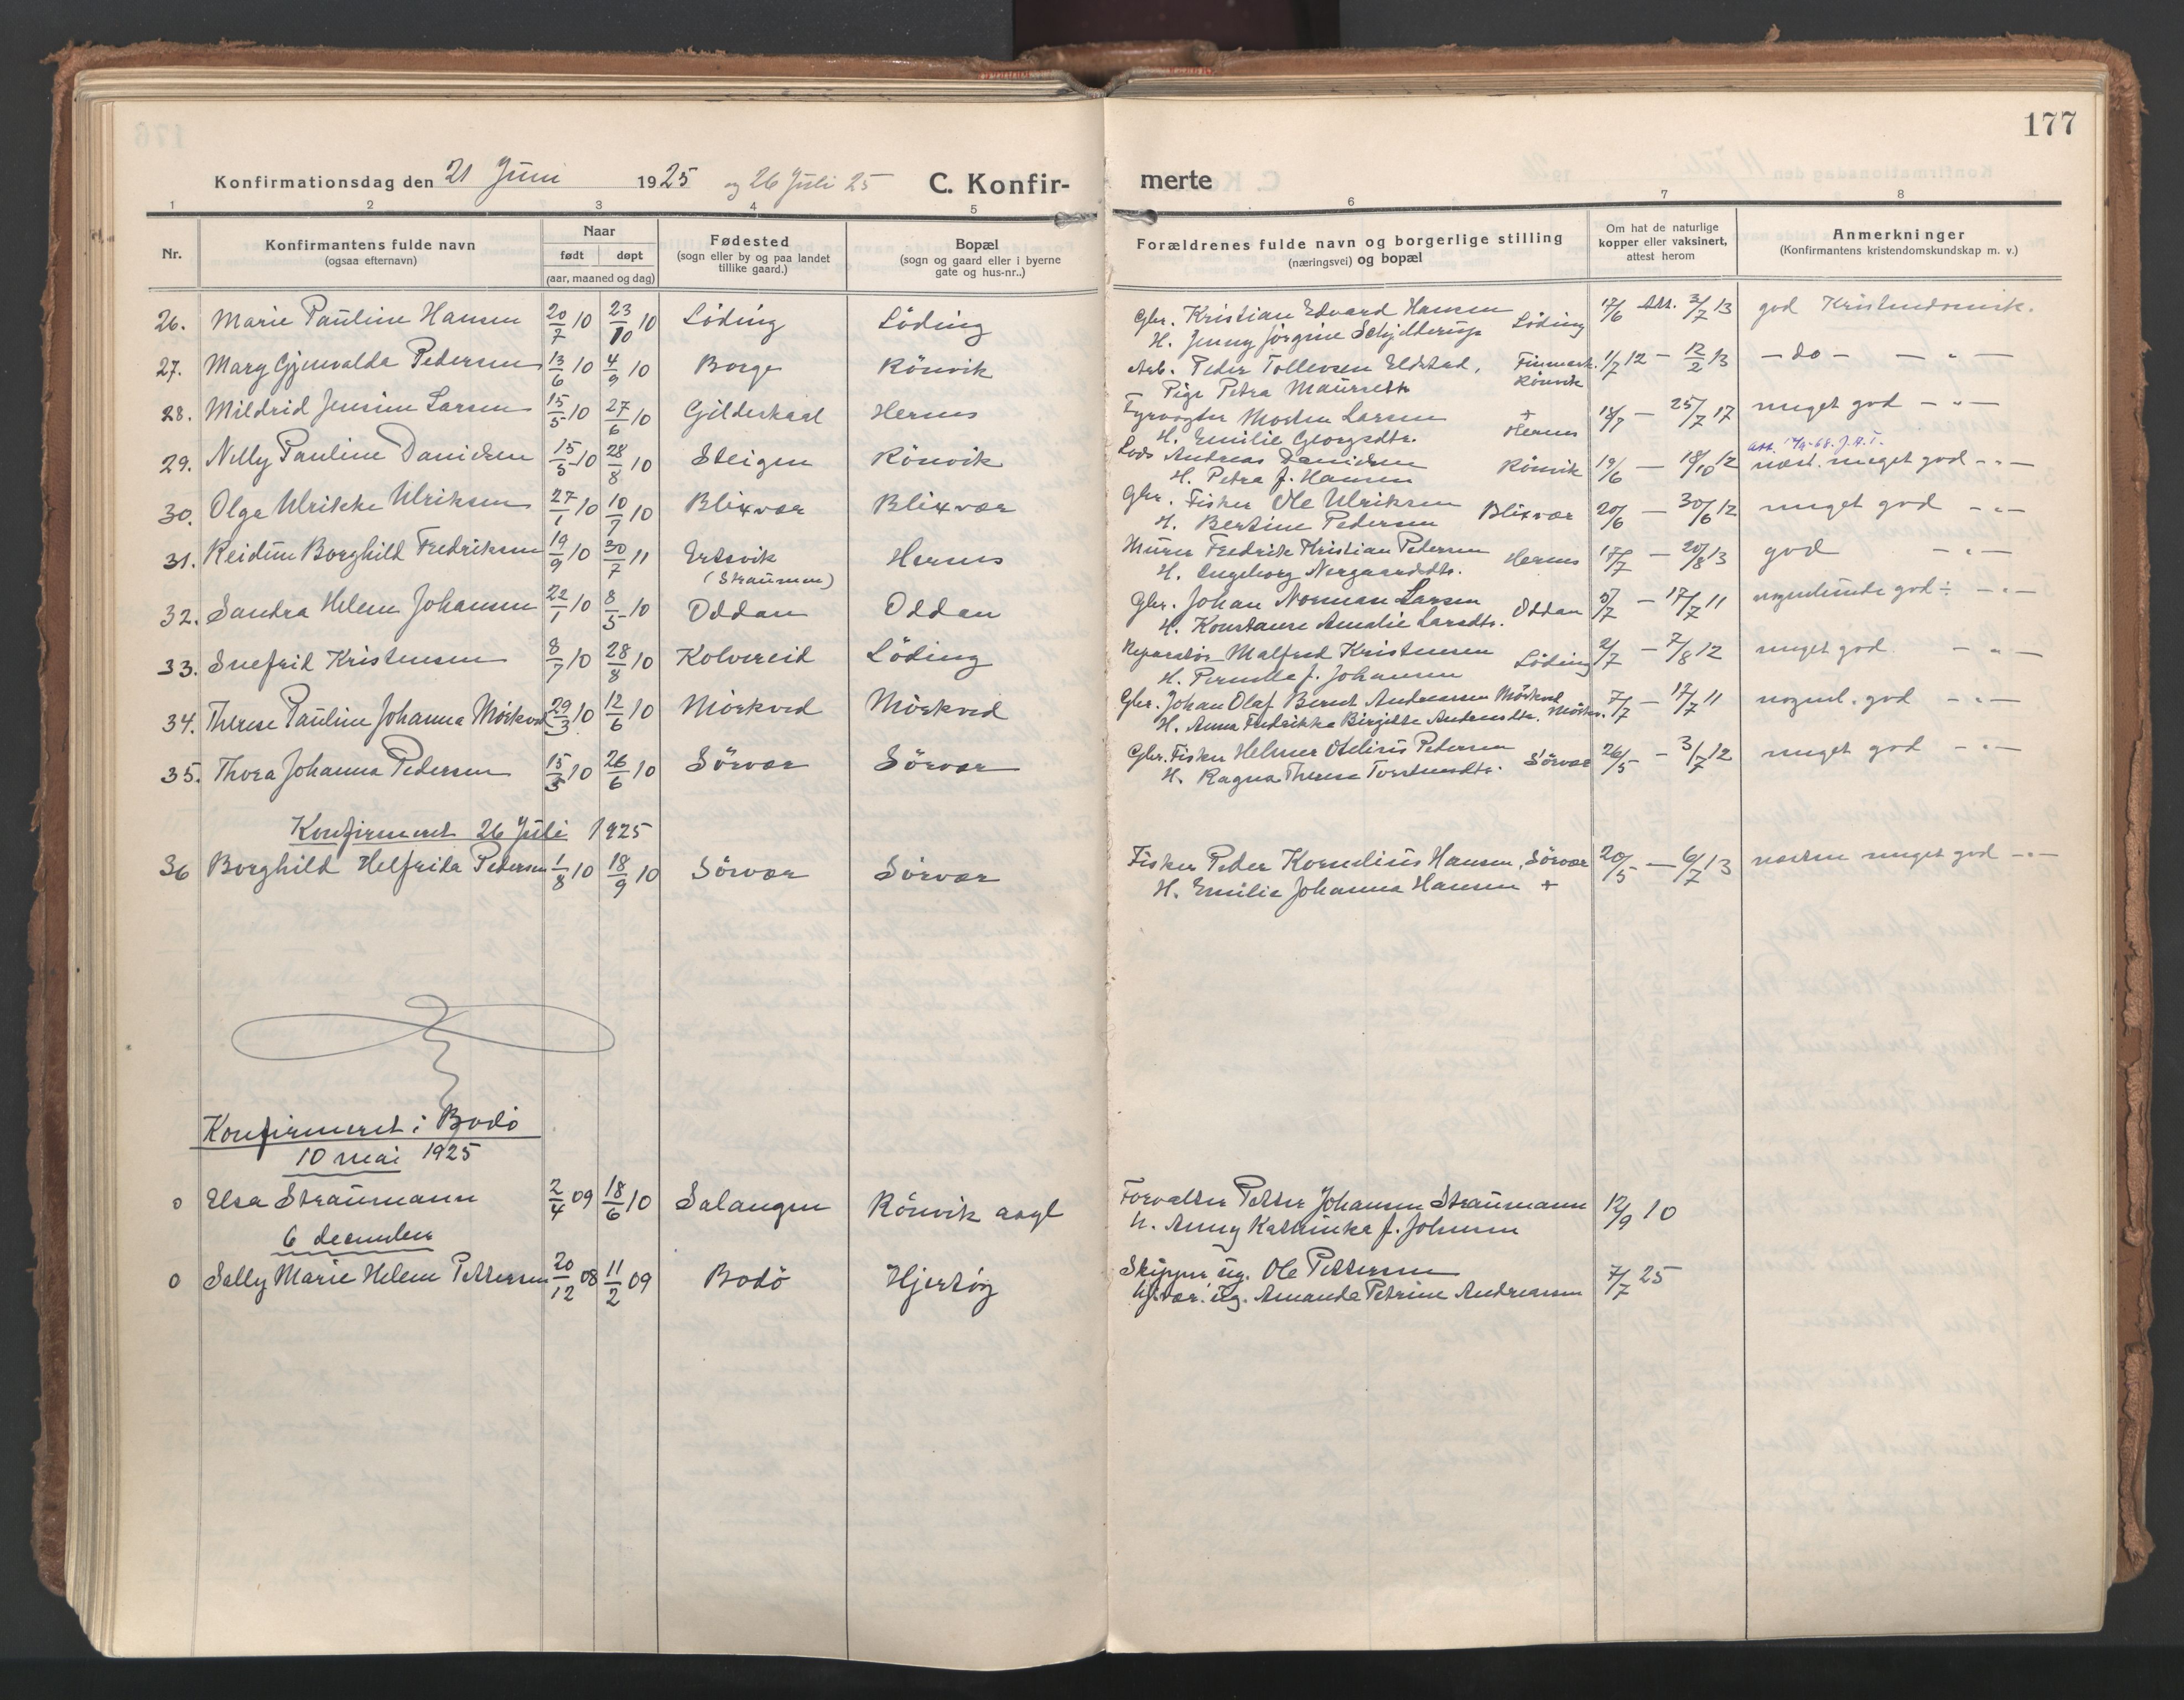 177
Konfirmationsdag den 21 Juni 1925 og 26 Juli 25 C. Konfir-merte
1 2 3 4 5 6 7 8
Nr.
Konfirmantens fulde navn
(ogsaa efternavn)
Naar
født døpt
(aar, maaned og dag)
Fødested
(sogn eller by og paa landet
tillike gaard.)
Bopæl
(sogn og gaard eller i byerne
gate og hus-nr..)
Forældrenes fulde navn og borgerlige stilling
(næringsvei) og bopæl
Om hat de naturlige
kopper eller vaksinert,
attest herom
Anmerkninger
(Konfirmantens kristendomskundskap m. v.)
26. Marie Pauline Hansen 20/7 10 23/10 10 Löding Löding Gbr. Kristian Edvard Hansen Löding 17/6 Att. 3/7 13 god Kristendomsk.
H. Jenny Jörgine Schjelderup
27. Mary Gjenvalda Pedersen 13/6 10 4/9 10 Borge Rönvik Arb. Peder Tollevsen Eldstad, Finmark. 1/7 12 – 12/2 13 – do – – „ –
Pige Petra Maurseth Rönvik
28. Mildrid Jensine Larsen 15/5 10 27/6 10 Gildeskaal Hernes Fyrvogter Morten Larsen + 18/7 – 25/7 17 meget god – „ –
H. Emilie Georgsdtr. Hernes
29. Nelly Pauline Danielsen 15/5 10 28/8 10 Steigen Rönvik Lods Andreas Danielsen Rönvik 19/6 – 18/10 12 næst. meget god – „ –
H. Petra f. Hansen
30. Olga Ulrikke Ulriksen 27/1 10 10/7 10 Blixvær Blixvær Gbr. Fisker Ole Ulriksen Blixvær 20/6 – 30/6 12 meget god – „ –
H. Bertine Pedersen
31. Reidun Borghild Fredriksen 19/9 10 30/7 11 Ertsvik Hernes Murer Fredrik Kristian Petersen Hernes 17/7 – 20/8 13 god – „ –
(Straumen) H. Ingeborg Norgaardsdtr.
32. Sandra Helene Johansen 22/1 10 8/5 10 Oddan Oddan Gbr. Johan Norman Larsen Oddan 5/7 – 17/7 11 nogenlunde god ÷ – „ –
H. Konstanse Amalie Larsdtr.
33. Snefrid Kristensen 8/7 10 28/8 10 Kolvereid Löding Reparatör Malfred Kristensen Löding 2/7 – 7/8 12 meget god – „ –
H. Pernille f. Johansen
34. Therese Pauline Johanna Mörkved 29/3 10 12/6 10 Mörkved Mörkved Gbr. Johan Olaf Bernt Andreassen Mörkved 7/7 – 17/7 11 nogenl. god – „ –
H. Anna Fredrikke Birgitte Andreasdtr. Mörkv.
35. Thora Johanna Pedersen 15/3 10 26/6 10 Sörvær Sörvær Gbr. Fisker Helmer Otelius Pedersen Sörvær 26/5 – 3/7 12 meget god – „ –
H. Ragna Therese Torstensdtr.
Konfirmeret 26 Juli 1925
36 Borghild Helfride Pedersen 1/8 10 18/9 10 Sörvær Sörvær Fisker Peder Kornelius Hansen, Sörvær 20/5 – 6/7 13 næsten meget god – „ –
H. Emilie Johanna Hansen +
Konfirmeret i Bodö
10 mai 1925
0 Elsa Straumann 2/4 09 18/6 10 Salangen Rönvik asyl Forvalter Petter Johansen Straumann 12/9 10
H. Anny Kathinka f. Johnsen
6 december
0 Sally Marie Helene Pettersen 20/12 08 11/2 09 Bodö Hjertöy Skipper ug. Ole Pettersen 7/7 25
ug. Amanda Petrine Andreassen